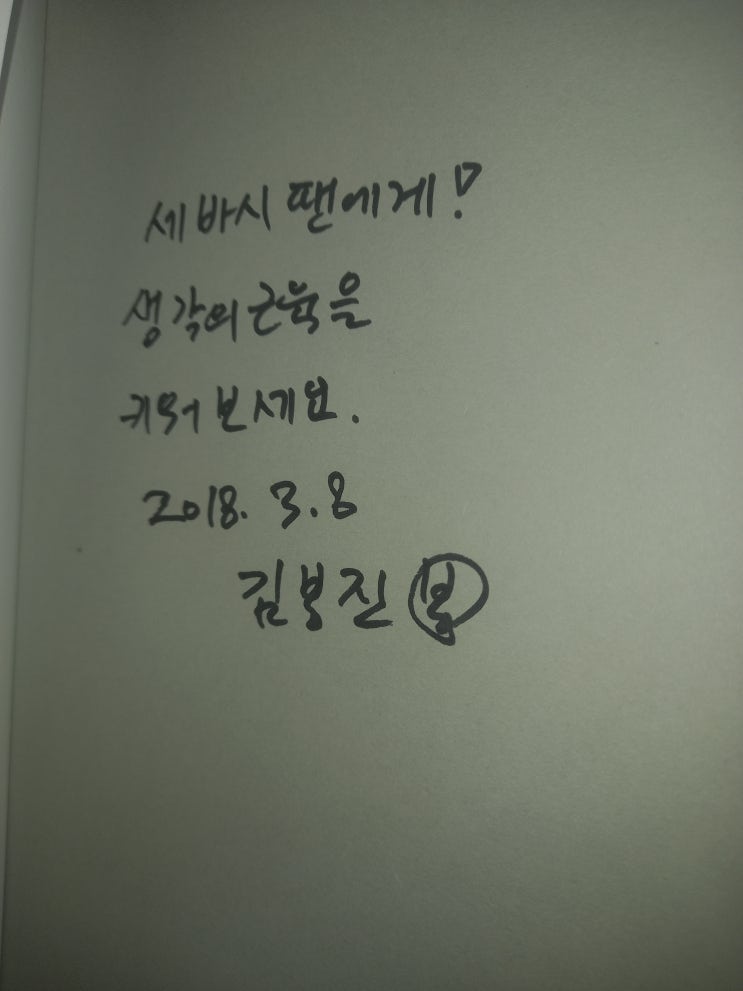 세바시 땐에게!
생각의 근육을
키워 보세요.
2018. 3. 8
김봉진 봉